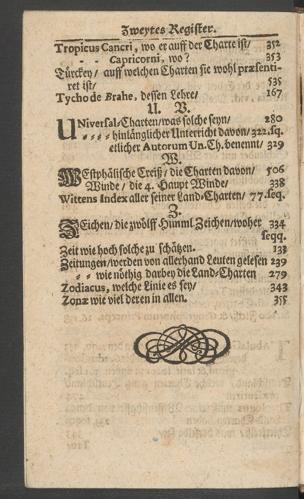 Zweytes Register.
Tropicus Cancri, wo er auff der Charte ist/ 352
- - Capricorni, wo? 353
Türckey/ auff welchen Charten sie wohl præsenti-
ret ist/ 535
Tycho de Brahe, dessen Lehre/ 167
U. V.
UNiversal-Charten/was solche seyn/ 280
- - - hinlänglicher Unterricht davon/ 322.sq.
etlicher Autorum Un. Ch. benennt/ 329
W.
WEstphälische Creiß/ die Charten davon/ 506
Winde/ die 4. Haupt Winde/ 338
Wittens Index aller seiner Land-Charten/ 77.seq.
Z.
ZEichen/ die zwölff Himml Zeichen/woher 334
seqq.
Zeit wie hoch solche zu schätzen. 133
Zeitungen/werden von allerhand Leuten gelesen 239
- - wie nöthig darbey die Land-Charten 279
Zodiacus, welche Linie es sey/ 343
Zonæ wie viel deren in allen. 355